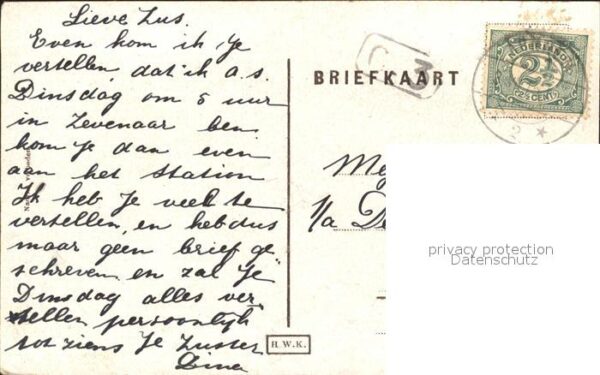 Lieve Zus.
Even kom ik je
vertellen, dat ik a.s.
Dinsdag om 5 uur
in Zevenaar ben
kom je dan even
aan het Station
Ik heb je veel te
vertellen, en heb dus
maar geen brief ge
schreven, en zal je
Dinsdag alles ver
tellen persoonlijk
tot ziens je Zuster
Dina
BRIEFKAART
3
NEDERLAND
2½
2½ CENT
2
Me
1/a De
privacy protection
Datenschutz
H.W.K.